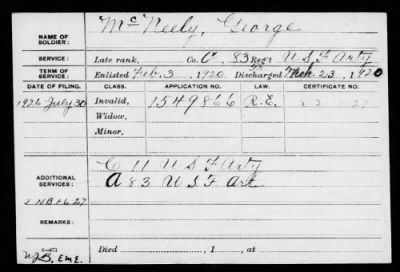 NAME OF SOLDIER: McNeely, George
SERVICE: Late rank, Co. C, 83 Reg't U S F Arty
TERM OF SERVICE: Enlisted Feb. 3, 1920, Discharged 23, 1920
DATE OF FILING. CLASS. APPLICATION NO. LAW. CERTIFICATE NO.
1926 July 30 Invalid, 1549866 R.E.
Widow,
Minor,
C 11 U S F Arty
ADDITIONAL SERVICES: A 83 U S F Art
REMARKS:
Died , 1 , at